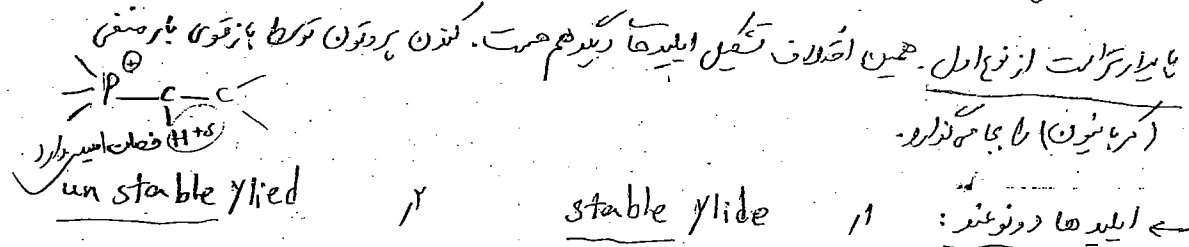 پایدارتر است از نوع اول. همین اختلاف تشکیل ایلیدها دیگر هم هست. کندن پروتون توسط باز قوی بار منفی
(کربانیون) را بجا می گذارد.
P⊕ — C — C
H+δ خصلت اسیدی دارد
← ایلیدها دونوعند: ۱, stable ylide ۲, un stable ylied